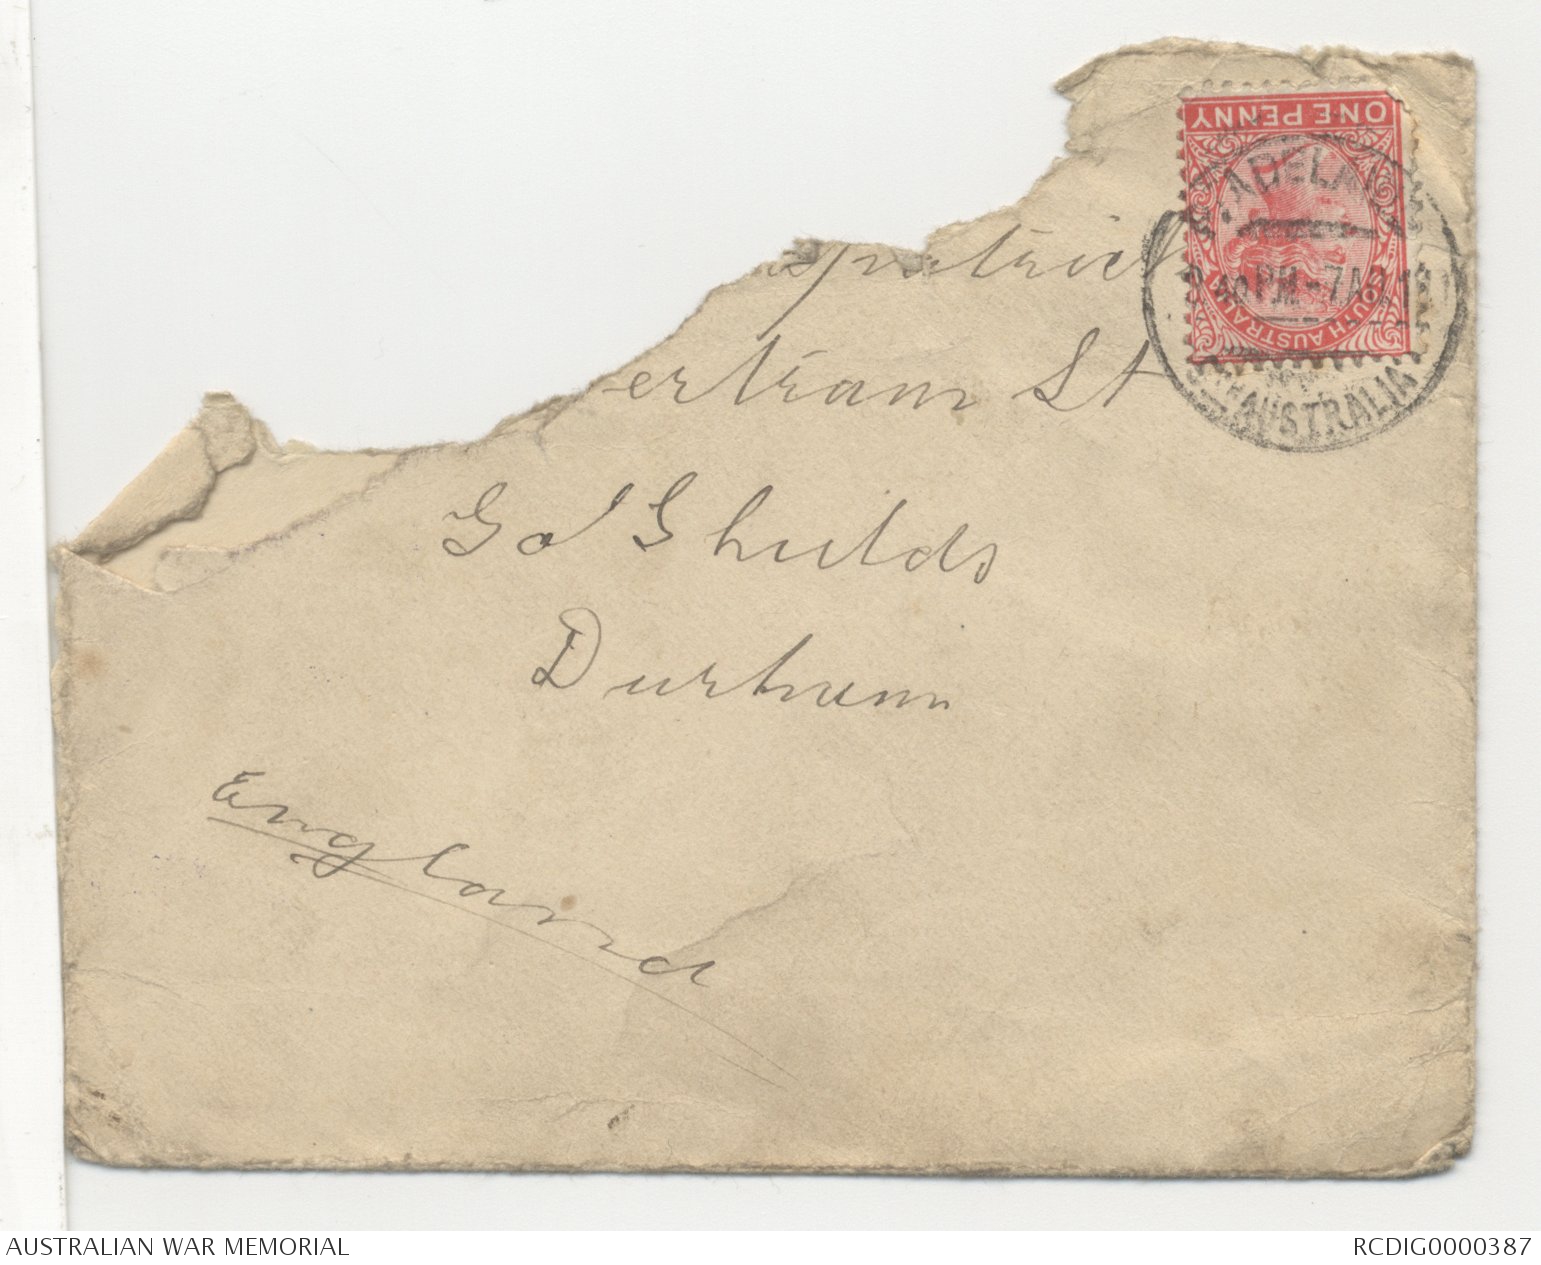 ONE PENNY
ADELAI
SOUTH AUSTRALIA
40 PM-7 AP 1
TH AUSTRALIA
spatrick
ertram St
So Shields
Durham
England
AUSTRALIAN WAR MEMORIAL
RCDIG0000387